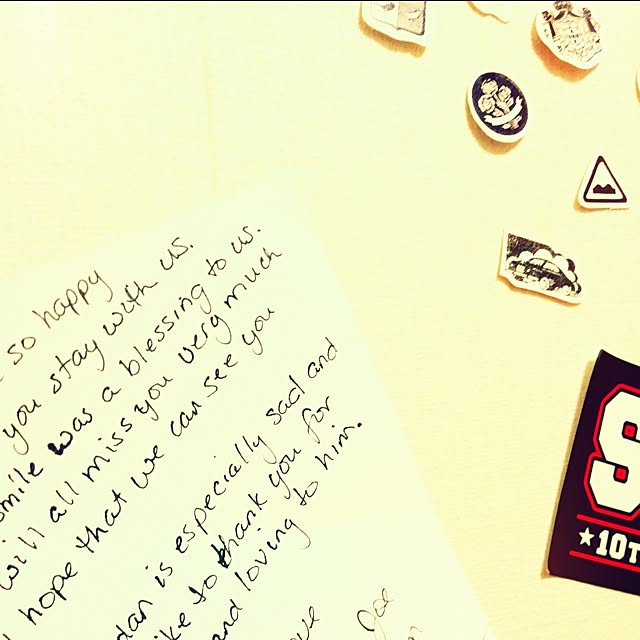 so happy
you stay with us.
smile was a blessing to us.
will all miss you very much
hope that we can see you
dan is especially sad and
ike to thank you for
and loving to him.
ove
Joe
S
★10T